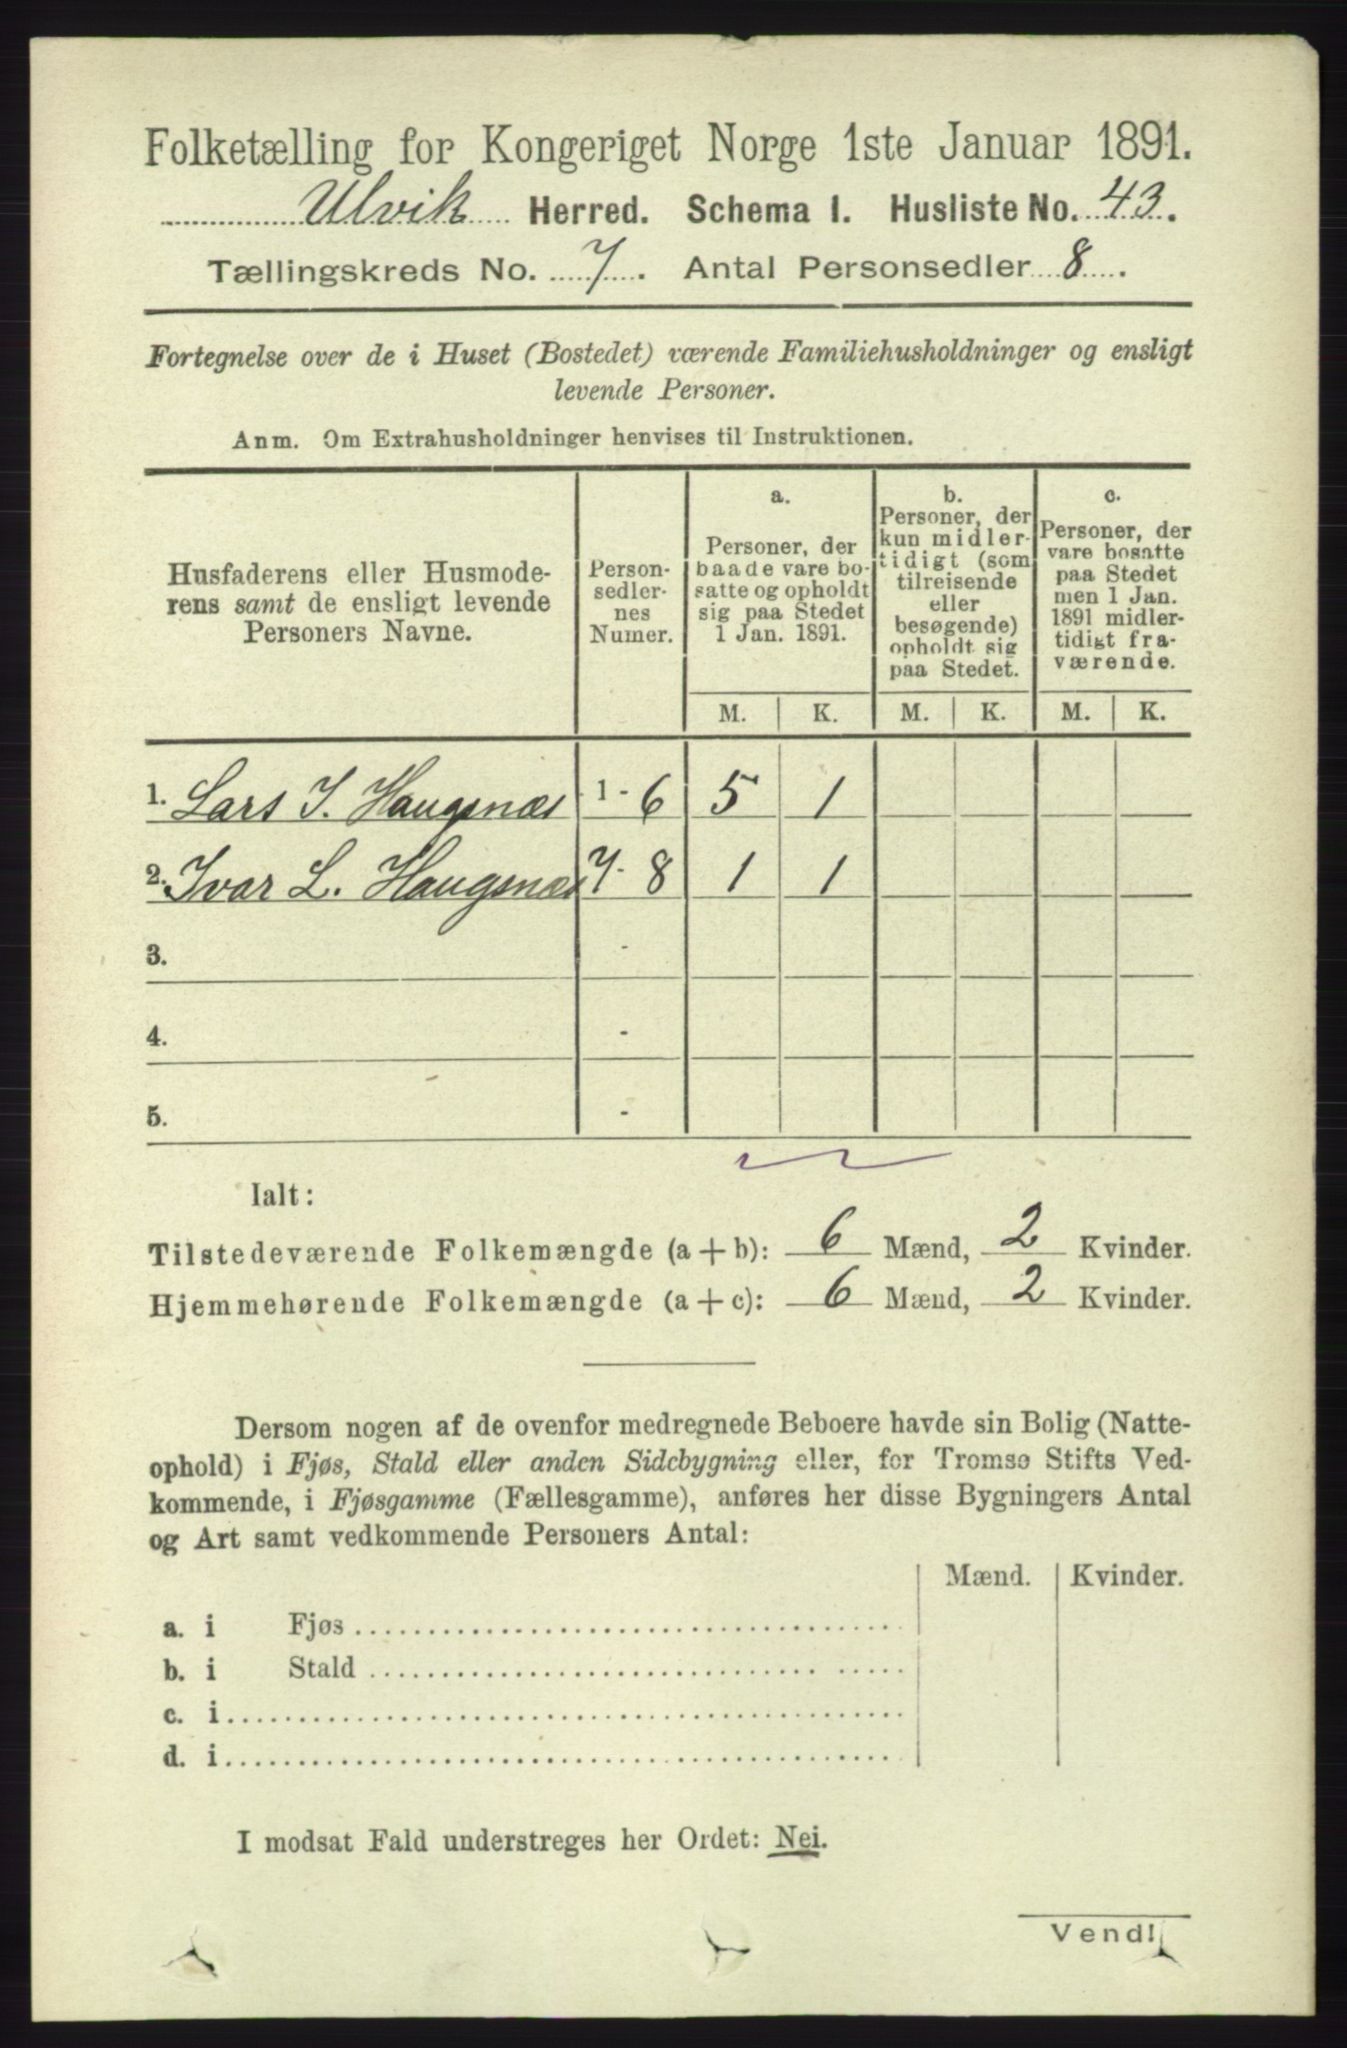 Folketælling for Kongeriget Norge 1ste Januar 1891.
Ulvik Herred. Schema I. Husliste No. 43.
Tællingskreds No. 7. Antal Personsedler 8.
Fortegnelse over de i Huset (Bostedet) værende Familiehusholdninger og ensligt
levende Personer.
Anm. Om Extrahusholdninger henvises til Instruktionen.
Husfaderens eller Husmode-
rens samt de ensligt levende
Personers Navne.
Person-
sedler-
nes
Numer.
a.
Personer, der
baade vare bo-
satte og opholdt
sig paa Stedet
1 Jan. 1891.
b.
Personer, der
kun midler-
tidigt (som
tilreisende
eller
besøgende)
opholdt sig
paa Stedet.
c.
Personer, der
vare bosatte
paa Stedet
men 1 Jan.
1891 midler-
tidigt fra-
værende.
M. K. M. K. M. K.
1. Lars I. Haugsnæs 1-6 5 1
2. Ivar L. Haugsnæs 7-8 1 1
3. -
4. -
5. -
Ialt:
Tilstedeværende Folkemængde (a+b): 6 Mænd, 2 Kvinder.
Hjemmehørende Folkemængde (a+c): 6 Mænd, 2 Kvinder.
Dersom nogen af de ovenfor medregnede Beboere havde sin Bolig (Natte-
ophold) i Fjøs, Stald eller anden Sidebygning eller, for Tromsø Stifts Ved-
kommende, i Fjøsgamme (Fællesgamme), anføres her disse Bygningers Antal
og Art samt vedkommende Personers Antal:
Mænd. Kvinder.
a. i Fjøs
b. i Stald
c. i
d. i
I modsat Fald understreges her Ordet: Nei.
Vend!